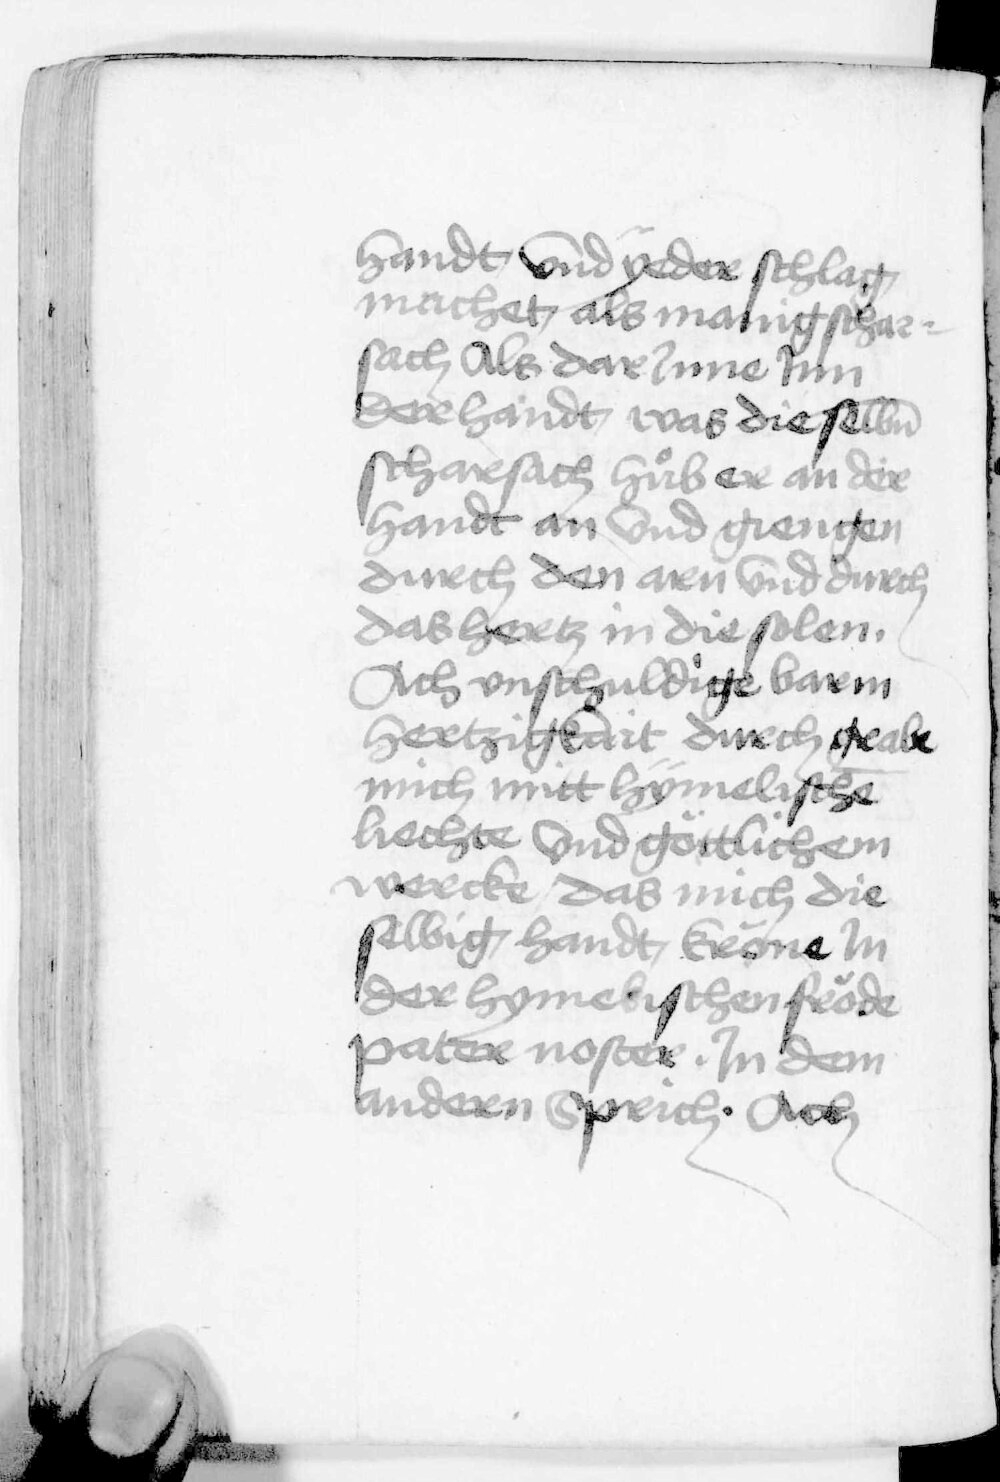 handt vnd yeder schlag
machet als manig schar-
sach Als dar Inne Inn
der handt was die selbn̄
scharsach hůb er an der
handt an vnd giengen
durch den arn vnd durch
das hertz in die solen.
Ach vnschuldige barm
hertzigkait durch grabe
mich mitt hÿmelischē
liechte vnd göttlichem
wercke das mich die
selbig handt kröne In
der hymelischen fröde
pater noster. In dem
andern Sprich. Ach